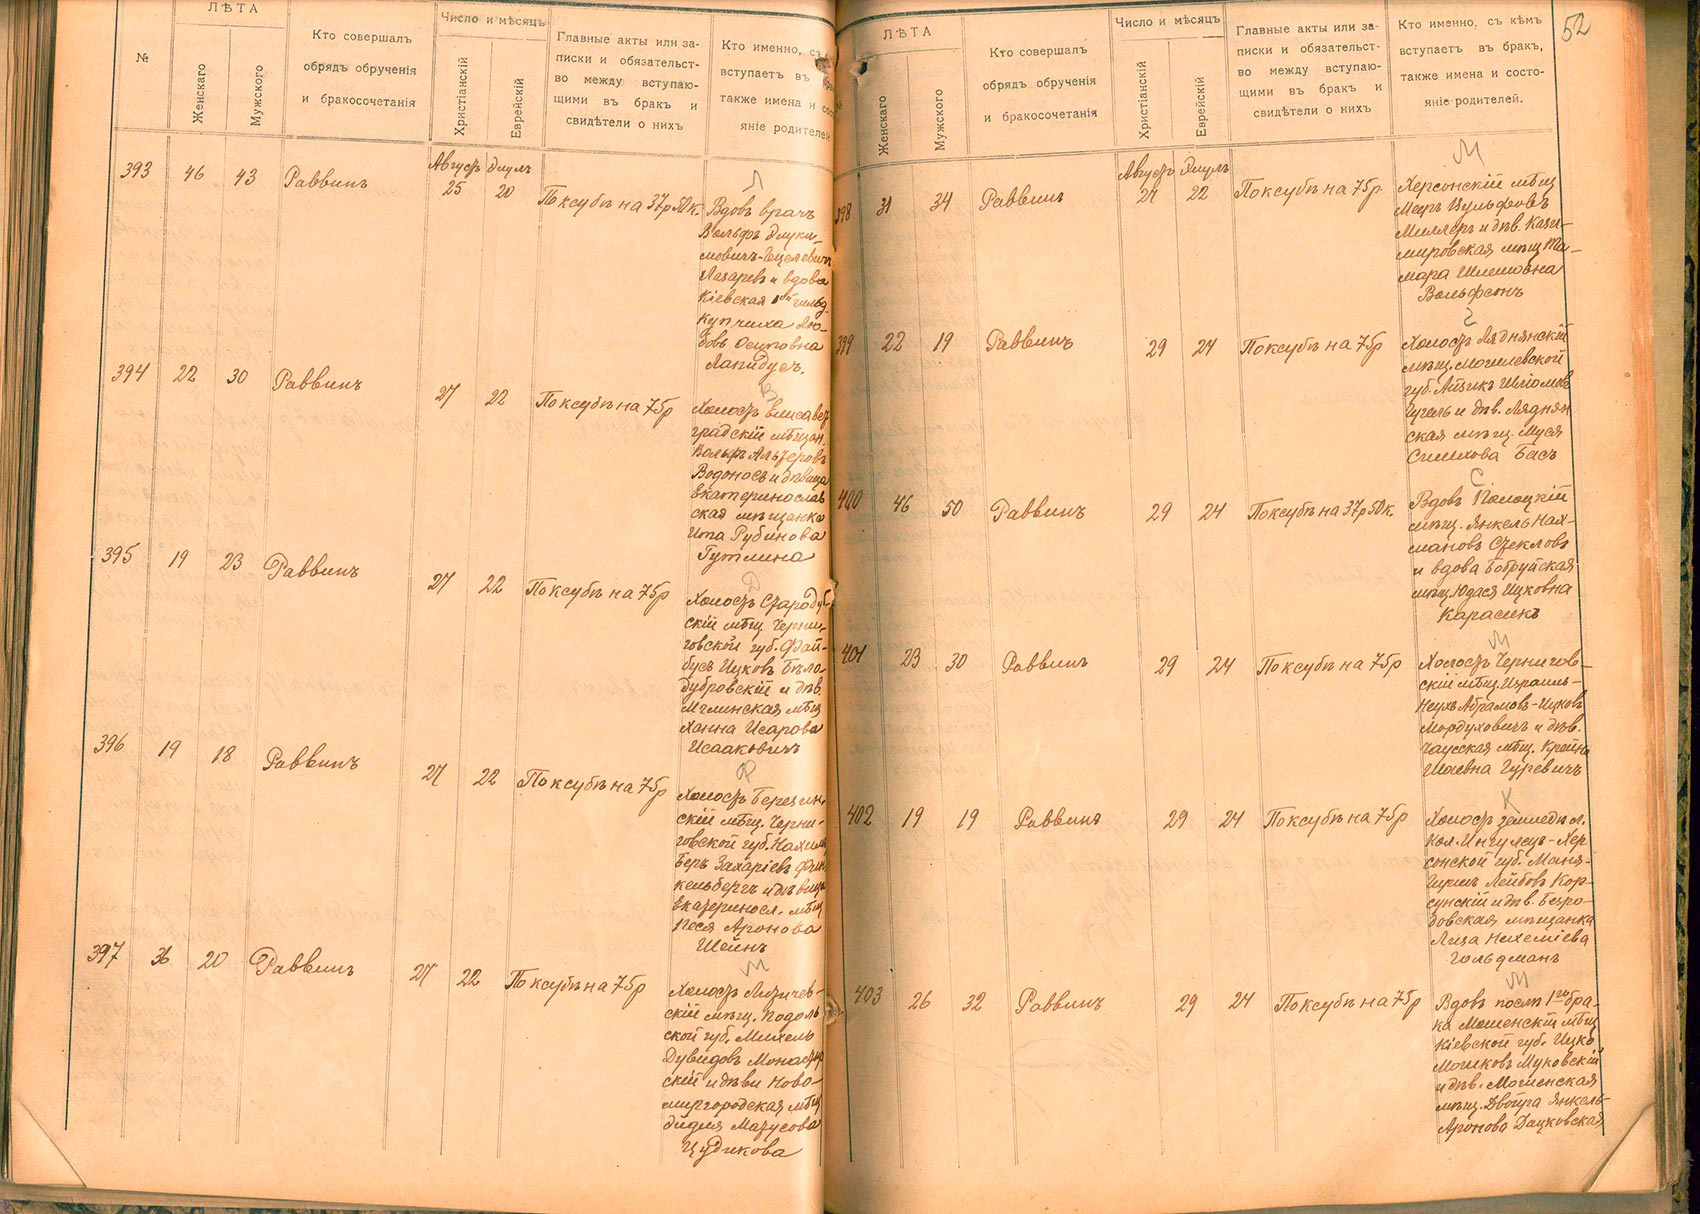 №
ЛѢТА
Женскаго
Мужского
Кто совершалъ
обрядъ обрученія
и бракосочетанія
Число и мѣсяцъ
Христіанскій
Еврейскій
Главные акты или за-
писки и обязательст-
во между вступаю-
щими въ бракъ и
свидѣтели о нихъ
Кто именно, съ
вступаетъ въ
также имена и сос
яніе родителей
393 46 43 Раввинъ
Августъ Элулъ
25 20
По ксубѣ на 37р 50к.
Л
Вдовъ врачъ
Вольфъ
Лазаревъ и вдова
Кіевская 1ой гильд.
купчиха Лю-
бовь Осиповна
Лапидусъ.
394 22 30 Раввинъ 27 22 По ксубѣ на 75р
В
Холостъ Елисавет
градскій мѣщан.
Вольфъ Альтеровъ
Водоносъ и дѣвица
Екатеринослав
ская мѣщанка
Ита Рубинова
Гутлина
395 19 23 Раввинъ 27 22 По ксубѣ на 75р
Д
Холостъ Стародуб
скій мѣщ. Черни-
говской губ. Фай-
бусъ Ицковъ Бѣла
дубровскій и дѣв.
Мглинская мѣщ
Ханна Исарова
Исааковичъ
396 19 18 Раввинъ 27 22 По ксубѣ на 75р
Ф
Холостъ Березин-
скій мѣщ. Черни-
говской губ. Нахим
Беръ Захаріевъ Фин
кельбергъ и дѣвица
Екатеринос. мѣщ
Песя Аронова
Шейнъ
397 36 20 Раввинъ 27 22 По ксубѣ на 75р
М
Холостъ Литичев-
скій мѣщ. Подоль
ской губ. Михель
Дувидовъ Монастыр
скій и дѣви Ново-
миргородская мѣщ
Матусова
Цудикова
52
ЛѢТА
Женскаго
Мужского
Кто совершалъ
обрядъ обрученія
и бракосочетанія
Число и мѣсяцъ
Христіанскій
Еврейскій
Главные акты или за-
писки и обязательст-
во между вступаю-
щими въ бракъ и
свидѣтели о нихъ
Кто именно, съ кѣмъ
вступаетъ въ бракъ,
также имена и состо-
яніе родителей.
398 31 34 Раввинъ
Августъ Элулъ
27 22
По ксубѣ на 75р.
М
Херсонскій мѣщ
Мееръ Вульфовъ
Миллеръ и дѣв. Кази-
мировская мѣщ Та-
мара Шлемовна
Вольфсонъ
399 22 19 Раввинъ 29 24 По ксубѣ на 75р
Холостъ Ляднянскій
мѣщ. Могилевской
губ. Айзикъ Шліомов
и дѣв. Ляднян
ская мѣщ. Муся
Симхова Басъ
400 46 50 Раввинъ 29 24 По ксубѣ на 37р 50к.
С
Вдовъ Полоцкій
мѣщ. Янкель Нах-
мановъ Стекловъ
и вдова Бобруйская
мѣщ. Юдася Ицковна
Карасикъ
401 23 30 Раввинъ 29 24 По ксубѣ на 75р
М
Холостъ Чернигов-
скій мѣщ. Израиль-
Неухъ Абрамовъ-Ицковъ
Мордуховичъ и дѣв.
Чаусская мѣщ. Крейна
Шаевна Гуревичъ
402 19 19 Раввинъ 29 24 По ксубѣ на 75р
К
Холостъ земледѣл.
Кол. Ингулецъ-Хер
сонской губ. Маня-
Гиршъ Лейбовъ Кор-
сунскій и дѣв. Безро-
довская мѣщанка
Лиза Нехеміева
Гольдманъ
403 26 32 Раввинъ 29 24 По ксубѣ на 75р
М
Вдовъ послѣ 1го бра-
ка Мошенскій мѣщ
Кіевской губ. Ицко
Мошковъ Муковскій
и дѣв. Мошенская
мѣщ. Двойра Янкель-
Аронова Дацковская